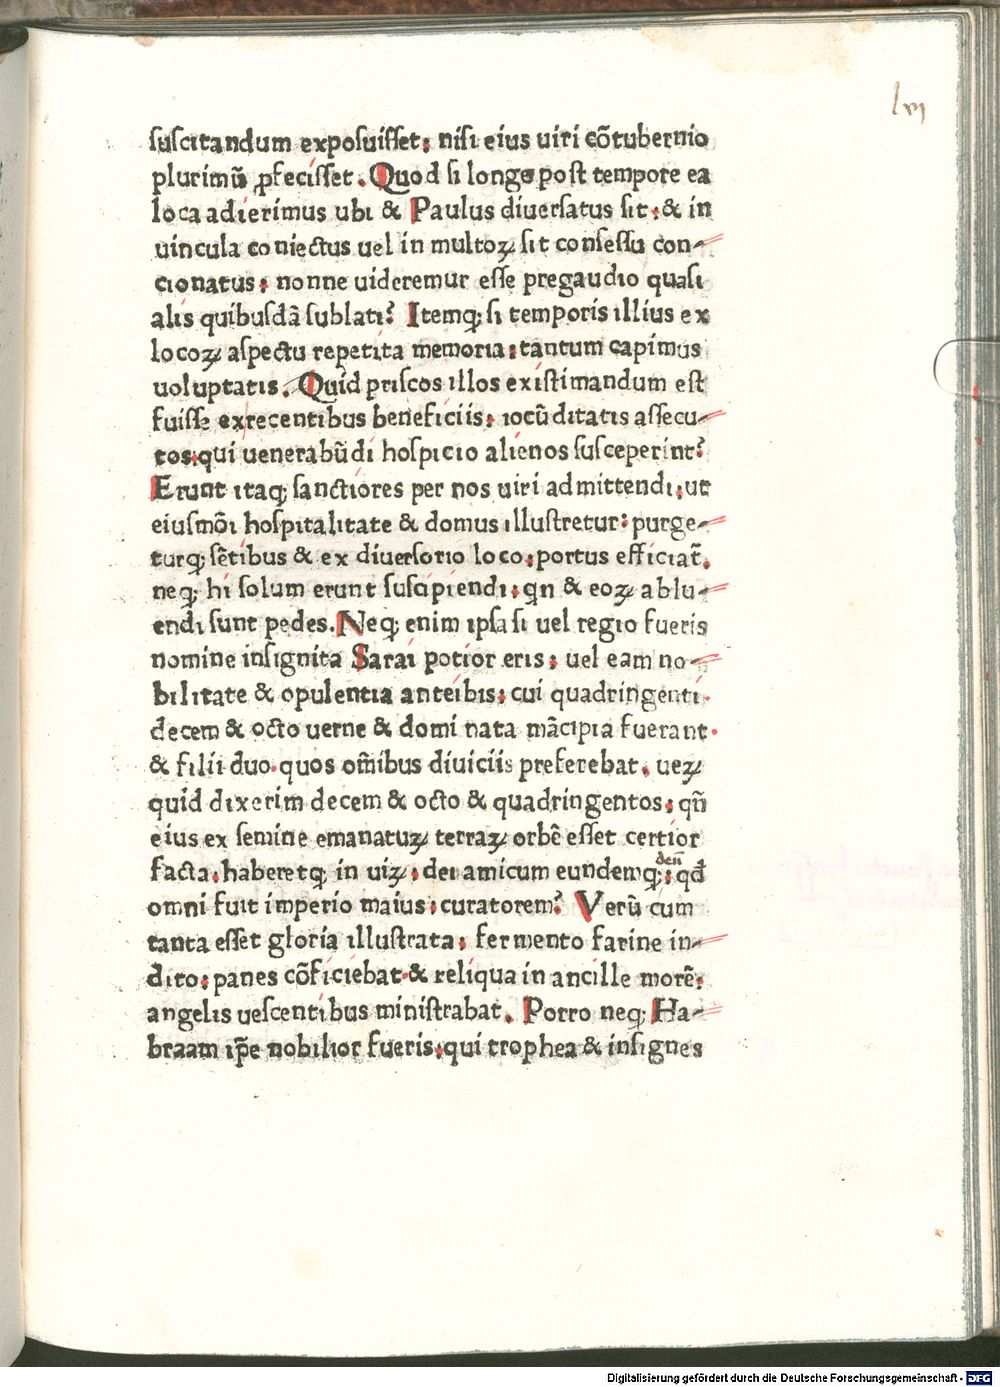 lvi
suſcitandum expoſuiſſet: niſi eius uiri cõtubernio
plurimũ ꝓfeciſſet. Quod ſi longe poſt tempore ea
loca adierimus ubi & Paulus diuerſatus ſit: & in
uincula coniectus uel in multoꝝ ſit conſeſſu con-
cionatus: nonne uideremur eſſe pregaudio quaſi
alis quibuſdã ſublati? Itemq; ſi temporis illius ex
locoꝝ aſpectu repetita memoria: tantum capimus
uoluptatis. Quid priſcos illos exiſtimandum eſt
fuiſſe exrecentibus beneficiis: iocũditatis aſſecu-
tos: qui uenerabũdi hoſpicio alienos ſuſceperint?
Erunt itaq; ſanctiores per nos uiri admittendi: ut
eiuſmõi hoſpitalitate & domus illuſtretur: purge-
turq; ſẽtibus & ex diuerſorio loco: portus efficiat̃.
neq; hi ſolum erunt ſuſcipiendi: qn & eoꝝ ablu-
endi ſunt pedes. Neq; enim ipſa ſi uel regio fueris
nomine inſignita Sarai potior eris: uel eam no-
bilitate & opulentia anteibis: cui quadringenti.
decem & octo uerne & domi nata mãcipia fuerant.
& filii duo. quos om̃ibus diuiciis preferebat. ueꝝ
quid dixerim decem & octo & quadringentos: qñ
eius ex ſemine emanatuꝝ terraꝝ orbẽ eſſet certior
facta: haberetq; in uiꝝ: dei amicum eundemq;: qđ
den̄
omni fuit imperio maius: curatorem? Verũ cum
tanta eſſet gloria illuſtrata: fermento farine in-
dito: panes cõficiebat. & reliqua in ancille morẽ:
angelis ueſcentibus miniſtrabat. Porro neq; Ha-
braam ip̃e nobilior fueris: qui trophea & inſignes
Digitalisierung gefördert durch die Deutsche Forschungsgemeinschaft - DFG